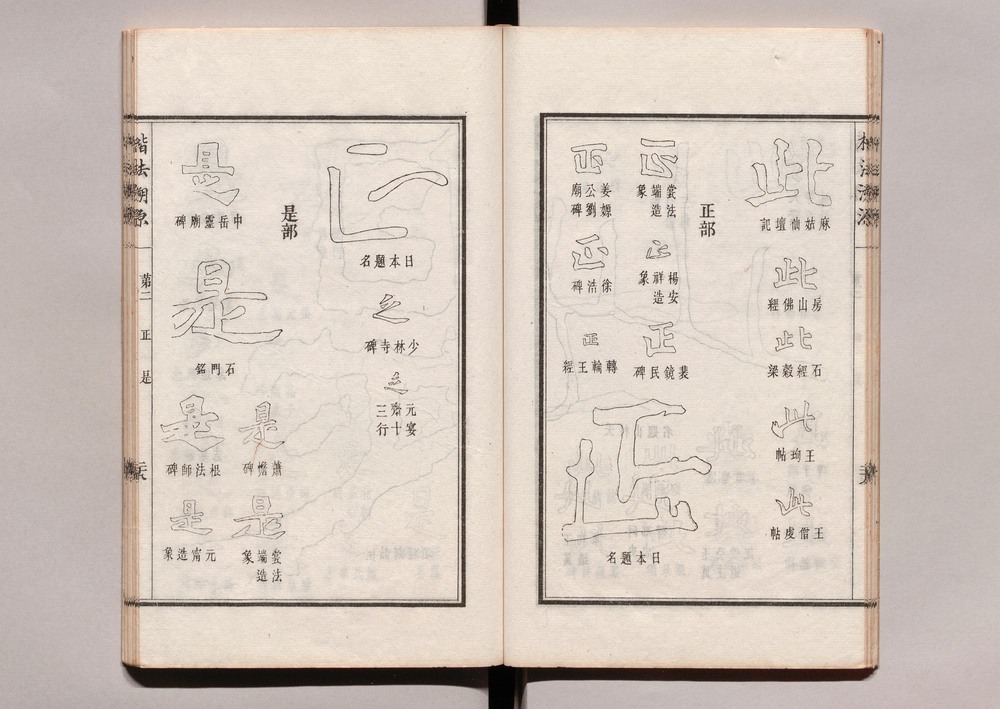 此
麻姑仙壇記
此
房山佛經
此
石經穀梁
此
王珣帖
此
王僧虔帖
正部
正
曇法端造象
正
楊安祥造象
正
裴鏡民碑
正
姜嫄公劉廟碑
正
徐浩碑
正
轉輪王經
正
日本題名
正
日本題名
正
少林寺碑
正
元宴齋十三行
是部
是
中岳靈廟碑
是
石門銘
是
蕭憺碑
是
曇法端造象
是
根法師碑
是
元甯造象
楷法溯源
第二
正
是